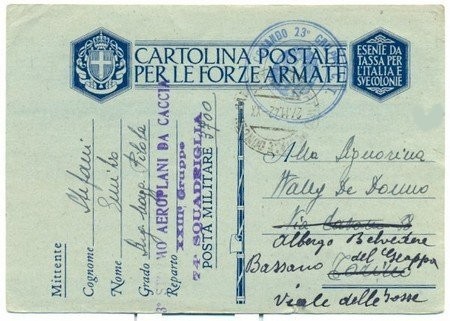 CARTOLINA POSTALE
PER LE FORZE ARMATE
ESENTE DA
TASSA PER
L'ITALIA E
SVE COLONIE
COMANDO 23°
Mittente
Cognome Stefani
Nome Emilio
Grado Serg. magg. Pilota
Reparto
3° STORMO AEROPLANI DA CACCIA
XXIII° Gruppo
74ª SQUADRIGLIA
POSTA MILITARE 3700
Alla Signorina
Wally De Donno
Via
Albergo Belvedere
Bassano del Grappa
Torino
Viale delle Fosse